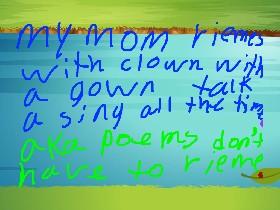 my mom riems
with clown with
a gown talk
a sing all the time
aka poems don't
have to rieme